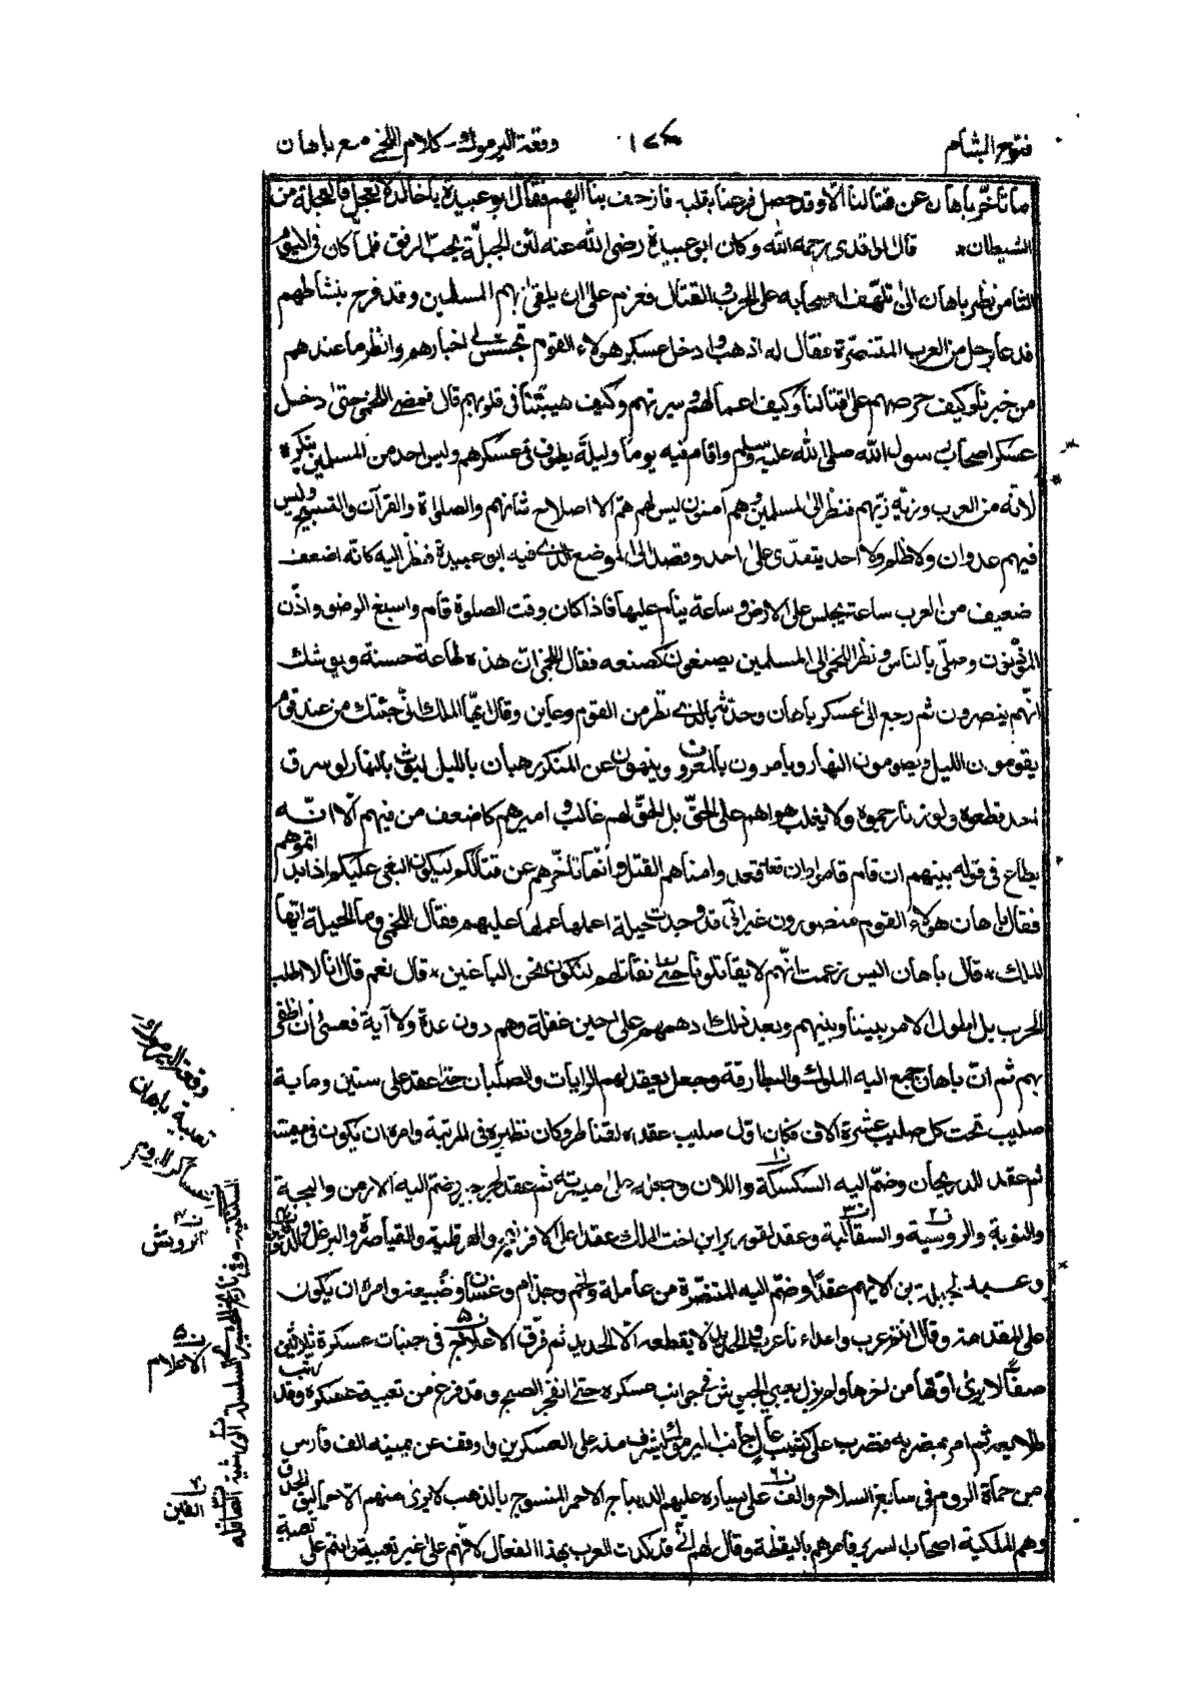 فتوح الشام ١٤٧ وقعة اليرموك - كلام اللخمي مع باهان
ما تأخّر باهان عن قتالنا الّا وقد حصل فزعنا بقلبه فازحف بنا اليهم فقال ابو عبيدة يا خالد لا تعجل فالعجلة من
الشيطان * قال الواقدي رحمه الله وكان ابو عبيدة رضى الله عنه لين الجبلّة يحبّ الرفق فلمّا كان فى اليوم
الثامن نظر باهان الى تلهّف اصحابه على الحرب والقتال فعزم على ان يلقى بهم المسلمين وقد فرح بنشاطهم
فدعا رجل من العرب المتنصّرة فقال له اذهب وادخل عسكر هولاء القوم تجسّس لى اخبارهم وانظر ما عندهم
من خبرنا وكيف حرصهم على قتالنا وكيف اعمالهم وسيرتهم وكيف هيبتنا فى قلوبهم قال فمضى اللخمى حتى دخل
عسكر اصحاب رسول الله صلى الله عليه وسلم واقام فيه يوما وليلة يطوف فى عسكرهم وليس احد من المسلمين ينكره
لانّه من العرب وزيّه زيّهم فنظر الى المسلمين وهم آمنون ليس لهم همّ الا اصلاح شأنهم والصلاة والقرآن والتسبيح وليس
فيهم عدوان ولا ظلم ولا احد يتعدّى على احد وقصد الى الموضع الذى فيه ابو عبيدة فنظر اليه كانّه اضعف
ضعيف من العرب ساعة يجلس على الارض وساعة ينام عليها فاذا كان وقت الصلوة قام واسبغ الوضوء واذّن
المؤذّنون وصلّى بالناس ونظر اللخمى الى المسلمين يصنعون كصنعه فقال اللخمى انّ هذه طاعة حسنة ويوشك
انّهم ينصرون ثم رجع الى عسكر باهان وحدّثه بالذى نظر من القوم وعاين وقال ايّها الملك انّى جئتك من عند قوم
يقومون الليل ويصومون النهار ويأمرون بالمعروف وينهون عن المنكر رهبان بالليل ليوث بالنهار لو سرق
احد قطعوه ولو زنا رجموه ولا يغلب هواهم على الحقّ بل الحقّ لهم غالب واميرهم كاضعف من فيهم الّا انّه
يطاع فى قوله بينهم ان قام قاموا وان قعد قعدوا مناهم القتل وانّما تأخّرهم عن قتالكم ليكون البغى عليكم اذا بدأتموهم
فقال باهان هولاء القوم منصورون غير انّى قد وجدت حيلة اعلمها عملها عليهم فقال اللخمى وما الحيلة ايّها
الملك * قال باهان اليس زعمت انّهم لا يقاتلونا حتى نقاتلهم لنكون نحن الباغين * قال نعم قال انا لا اطلب
الحرب بل اطول الامر بيننا وبينهم وبعد ذلك ادهمهم على حين غفلة وهم دون عدة ولا آية فعسى ان اظفر
بهم ثم انّ باهان جمع اليه الملوك والبطارقة وجعل يعقد لهم الرايات والصلبان حتى عقد على ستين ومأية
صليب تحت كل صليب عشرة آلاف فكان اوّل صليب عقده لقناطر وكان نظيره فى المرتبة وامره ان يكون فى ميمنته
ثم عقد للديرجان وضمّ اليه السكسكة واللان وجعله على ميسرته ثم عقد لجرجير وضمّ اليه الارمن والبجة
والنوبة والروسية والسقالبة وعقد لقورير ابن اخت الملك عقدا على الافرنج والهرقلية والقياصرة والبرغل
وعقد لجبلة بن الايهم عقدًا وضمّ اليه المتنصّرة من عاملة ولخم وجذام وغسّان وضبيعة وامره ان يكون
على المقدمة وقال انتم عرب واعداءنا عرب والحديد لا يقطعه الّا الحديد ثم فرّق الاعلاج فى جنبات عسكره ثلاثين
صفًّا لا يرى اوّلها من آخرها ولم يزل يعبى الجيوش فى جوانب عسكره حتى انفجر الصبح وقد فرغ من تعبية عسكره وقد رتّب
طلايعه ثم امر بمضربه فضرب على كثيب عال جانب اليرموك يشرف منه على العسكرين واوقف عن يمينه الف فارس
من حماة الروم فى سابغ السلاح والف على يساره عليهم الديباج الاحمر المنسوج بالذهب لا يرى منهم الّا حماليق الحدق
وهم الملكية اصحاب السرير فامرهم باليقظة وقال لهم انّى قد نكدت العرب بهذا الفعال لانّهم على غير تعبية وانتم على تعبية
وقعة اليرموك
تعبية باهان
عساكر الروم
الرويش
ن٥
الاعلام
الفين